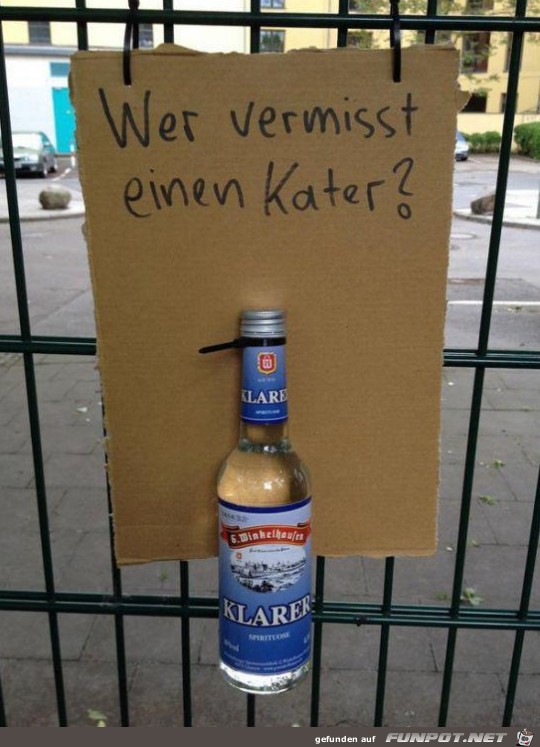 Wer vermisst
einen Kater?
KLARER
SPIRITUOSE
G. Winkelhausen
KLARER
SPIRITUOSE
gefunden auf FUNPOT.NET